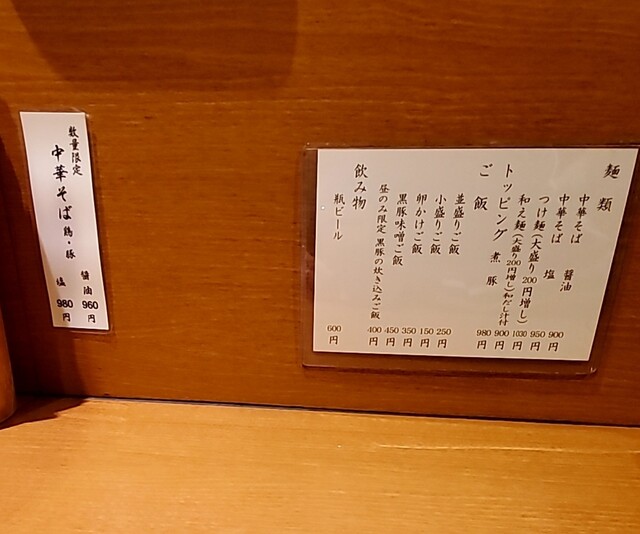 麺類
中華そば 醤油 900円
中華そば 塩 950円
つけ麺(大盛り200円増し) 1030円
和え麺(大盛り200円増し)和だし汁付 900円
トッピング 煮豚 980円
ご飯
並盛りご飯 250円
小盛りご飯 150円
卵かけご飯 350円
黒豚味噌ご飯 450円
昼のみ限定 黒豚の炊き込みご飯 400円
飲み物
瓶ビール 600円
数量限定
中華そば 鶏・豚
醤油 960円
塩 980円